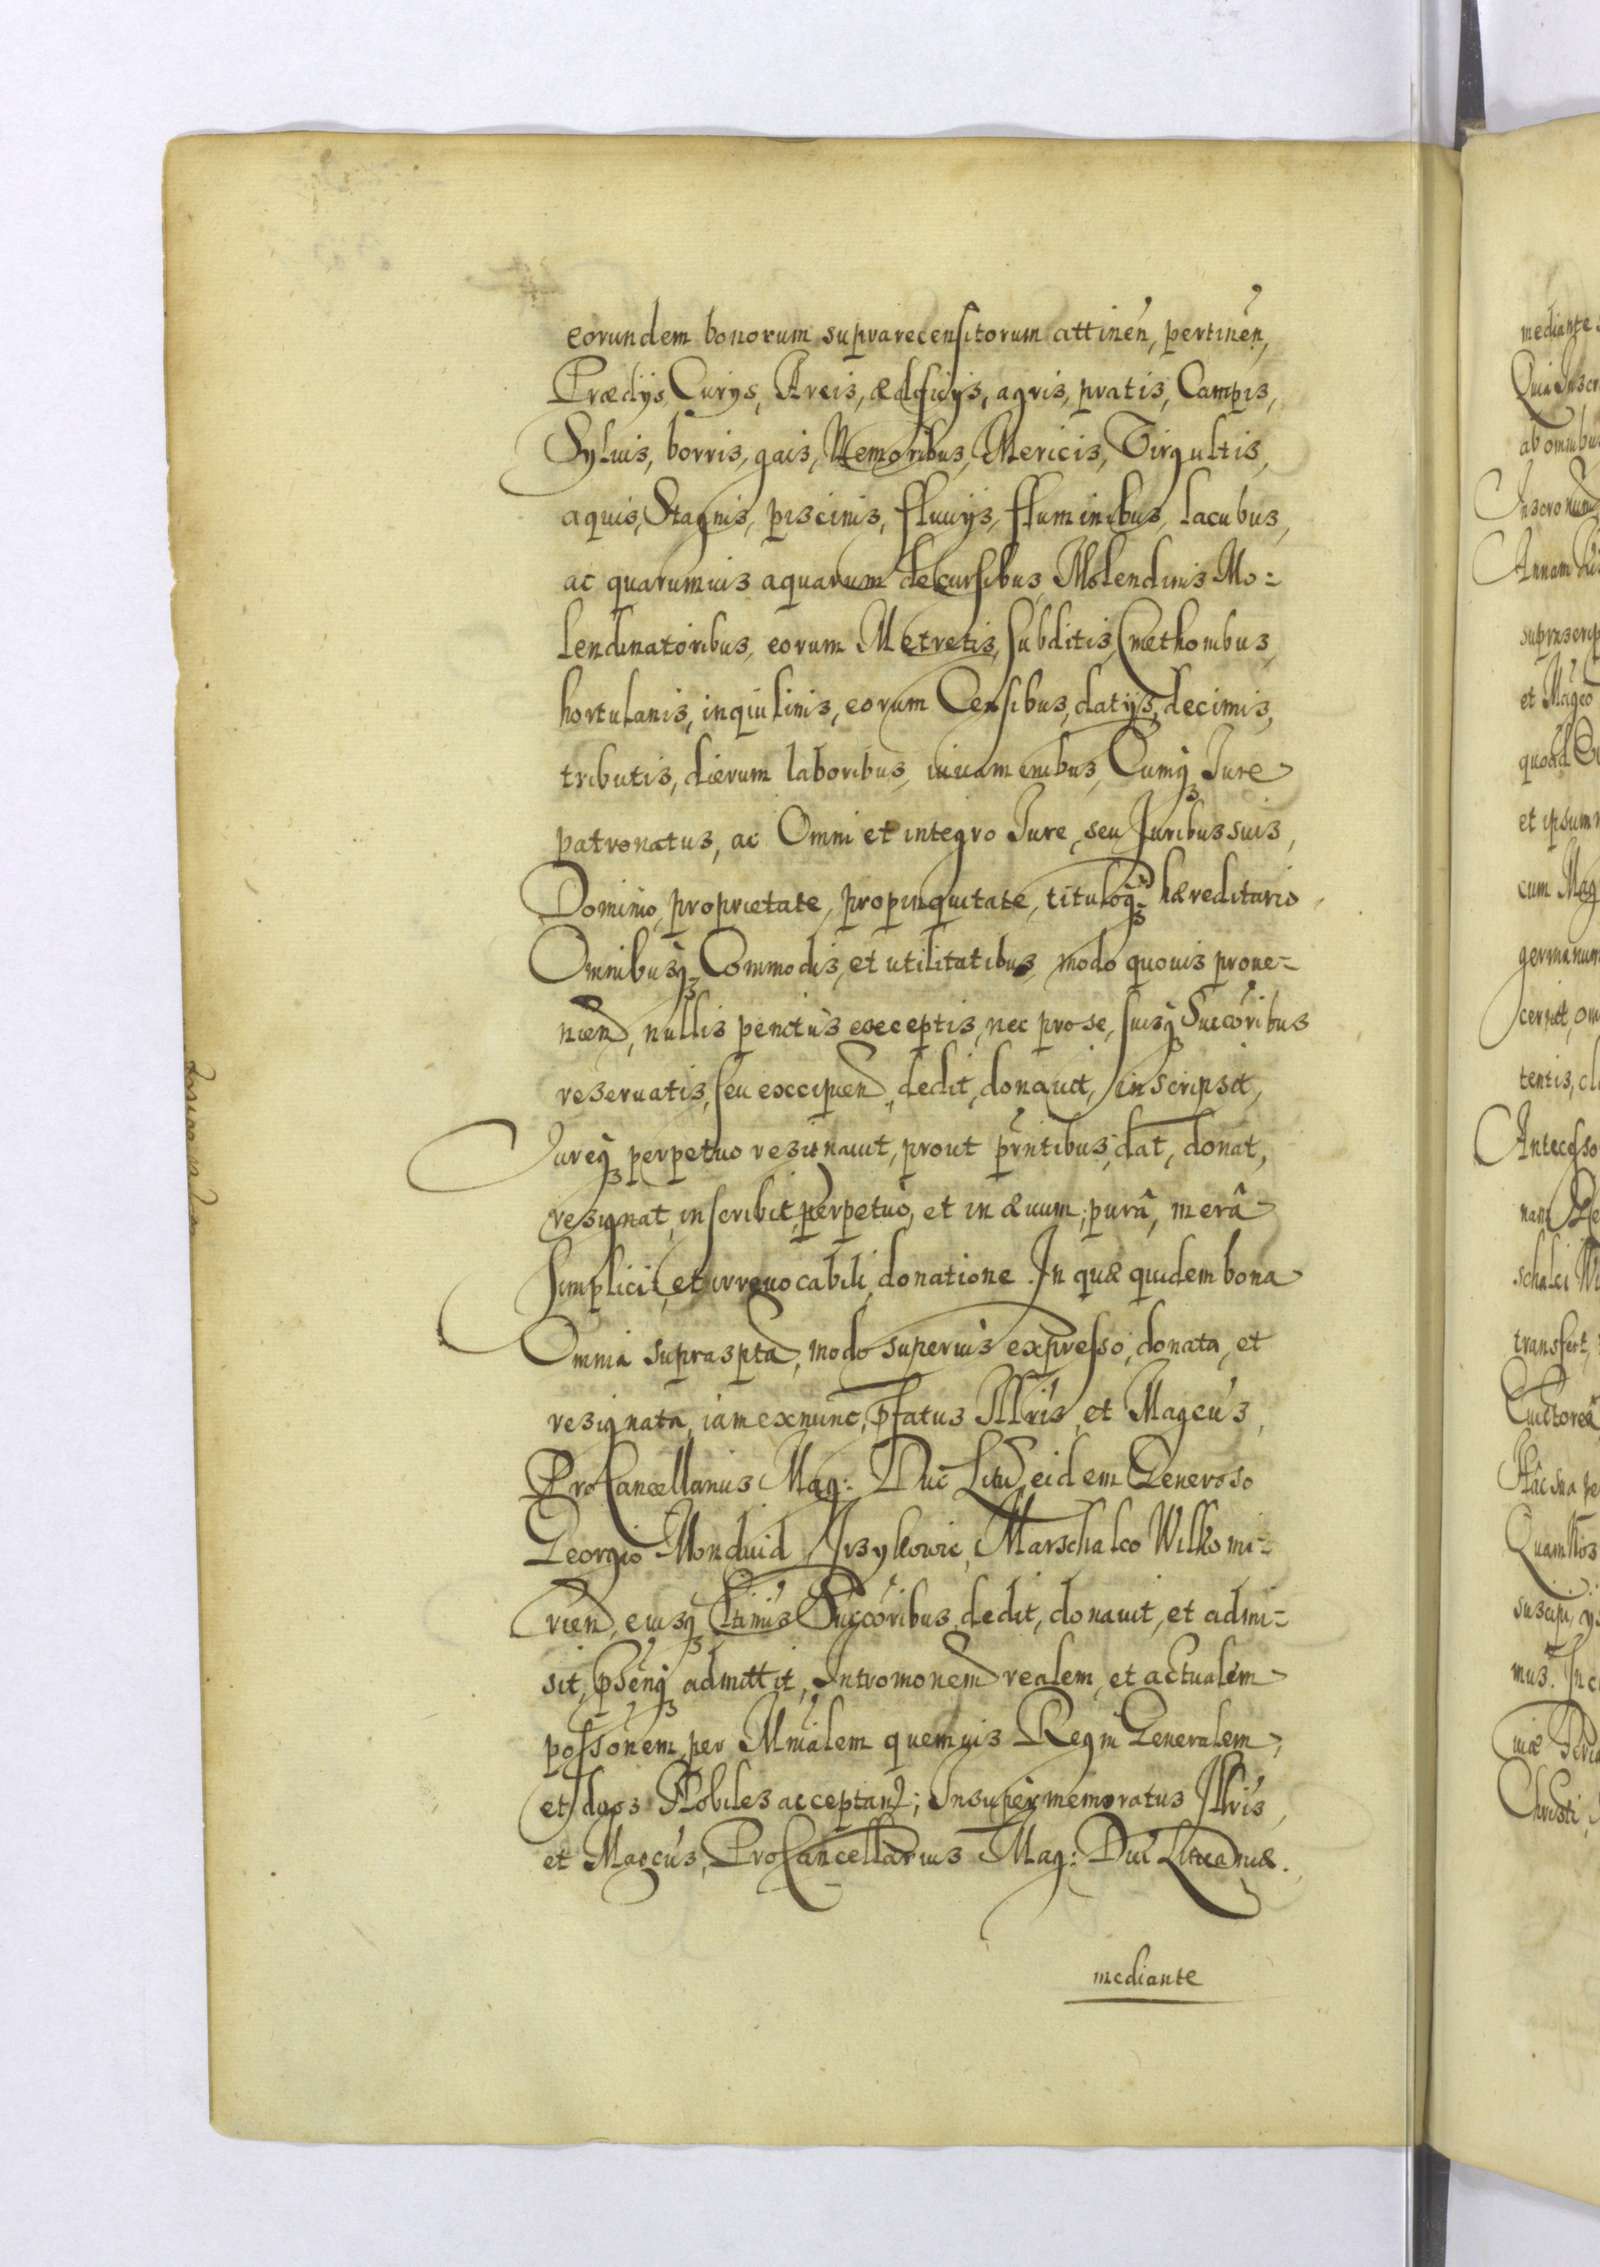 eorundem bonorum suprarecensitorum attinen̄, pertinen̄,
Prædijs Curijs, Areis, ædificijs, agris, pratis, Campis,
Syluis, borris, gais, Nemoribus, Mericis, Virgultis,
aquis, Stagnis, piscinis, fluuijs, fluminibus, lacubus,
ac quarumuis aquarum decursibus, Molendinis Mo=
lendinatoribus, eorum Metretis, subditis, Cmethonibus,
hortulanis, inquilinis, eorum Censibus, datijs, decimis,
tributis, dierum laboribus, iuuaminibus, Cumq₃ Iure
patronatus, ac Omni et integro Iure, seu Juribus suis,
Dominio, proprietate, propinquitate, tituloq₃ hæreditario,
Omnibusq₃ Commodis, et utilitatibus, modo quouis proue=
nien̄, nullis penitus exceptis, nec pro se, suisq₃ Succōribus
reseruatis, seu excipien̄, dedit, donauit, inscripsit,
Iureq₃ perpetuo resignauit, prout p̄ntibus, dat, donat,
resignat, inscribit, perpetuò, et in æuum; purâ, merâ
simplici, et irreuocabili, donatione. In quæ quidem bona
Omnia supraspta, modo superius expresso, donata, et
resignata, iam exnunc, p̄fatus Illris, et Magcus,
ProCancellarius Mag: Duc̄ Litu eidem Generoso
Georgio Monduid Irzykowic, Marschalco Wilkomi=
rien̄, eiusq₃ Ltimis Succōribus dedit, donauit, et admi=
sit, p̄senq₃ admittit, Intromonem realem, et actualem
possonem, per Mnialem quemuis Regni Generalem,
et duos Nobiles acceptan̄; Insuper memoratus Illris,
et Magcus, ProCancellarius Mag: Duc̄ Lituaniæ.
mediante